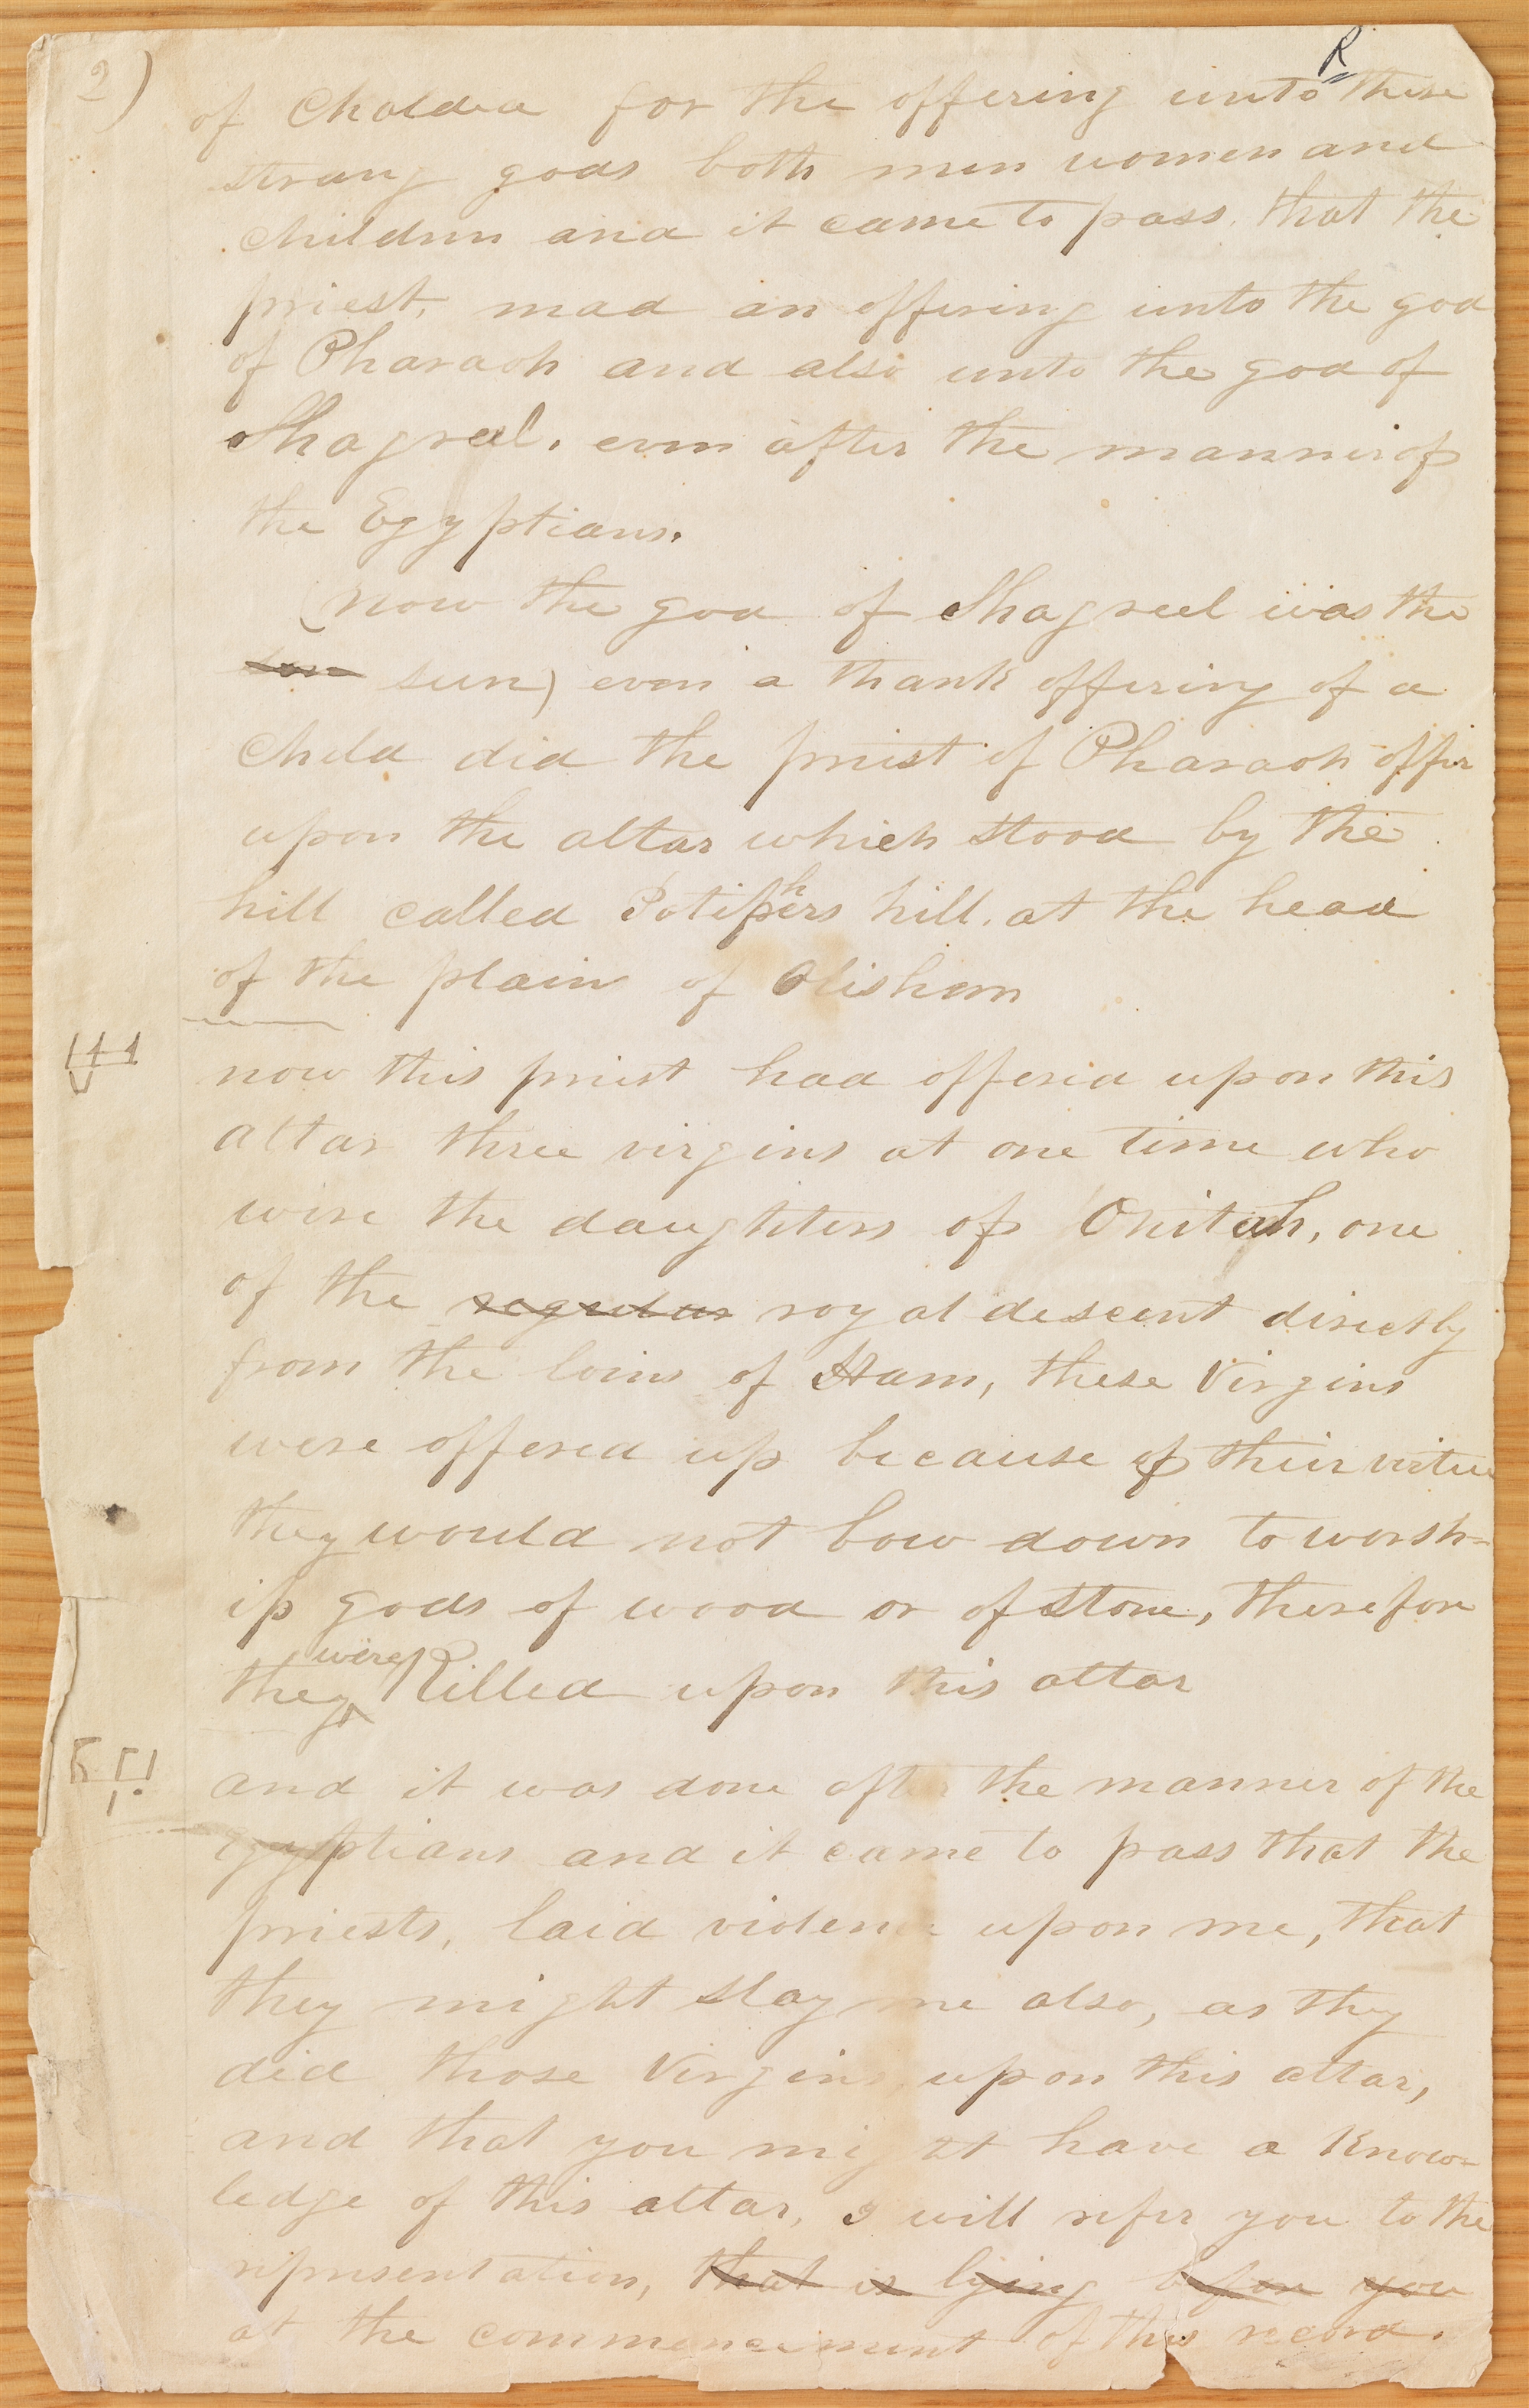 2)
R
of Chaldea for the offering unto these
strang gods both men women and
children and it came to pass, that the
priest, mad an offering unto the god
of Pharaoh and also unto the god of
Shagreel, even after the manner of
the Egyptians.
(now the god of Shagreel was the
son sun) even a thank offering of a
child did the priest of Pharaoh offer
upon the altar which stood by the
hill called Potiphers hill, at the head
of the plain of Olishem
now this priest had offered upon this
altar three virgins at one time who
were the daughters of Onitah, one
of the regular royal descent directly
from the loins of Ham, these Virgins
were offered up because of their virtue
they would not bow down to worsh=
ip gods of wood or of stone, therefore
they were killed upon this altar
and it was done after the manner of the
egyptians and it came to pass that the
priests, laid violence upon me, that
they might slay me also, as they
did those Virgins, upon this altar,
and that you might have a know=
ledge of this altar, I will refer you to the
representation, that is lying before you
at the commencement of this record.